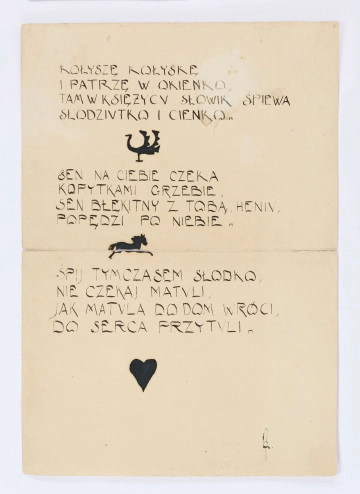 KOŁYSZĘ KOŁYSKĘ
I PATRZĘ W OKIENKO,
TAM W KSIĘŻYCU SŁOWIK ŚPIEWA
SŁODZIUTKO I CIENKO..
SEN NA CIEBIE CZEKA
KOPYTKAMI GRZEBIE,
SEN BŁĘKITNY Z TOBĄ, HENIU,
POPĘDZI PO NIEBIE..
ŚPIJ TYMCZASEM SŁODKO,
NIE CZEKAJ MATULI,
JAK MATULA DO DOM WRÓCI,
DO SERCA PRZYTULI..